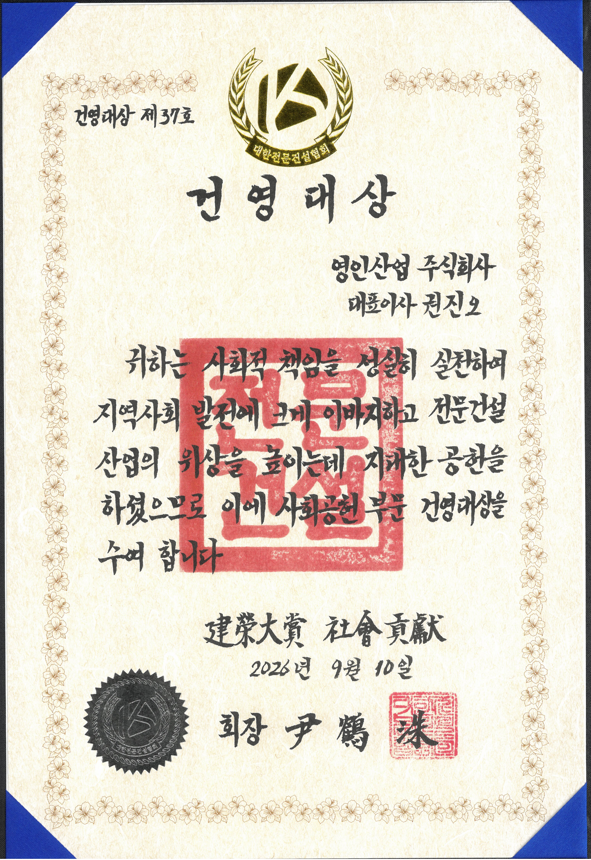 건영대상 제37호
대한전문건설협회
건영대상
영인산업 주식회사
대표이사 권진오
귀하는 사회적 책임을 성실히 실천하여
지역사회 발전에 크게 이바지하고 전문건설
산업의 위상을 높이는데 지대한 공헌을
하셨으므로 이에 사회공헌 부문 건영대상을
수여 합니다
전문
건설
建榮大賞 社會貢獻
2026년 9월 10일
회장 尹鶴洙
대한전문건설협회